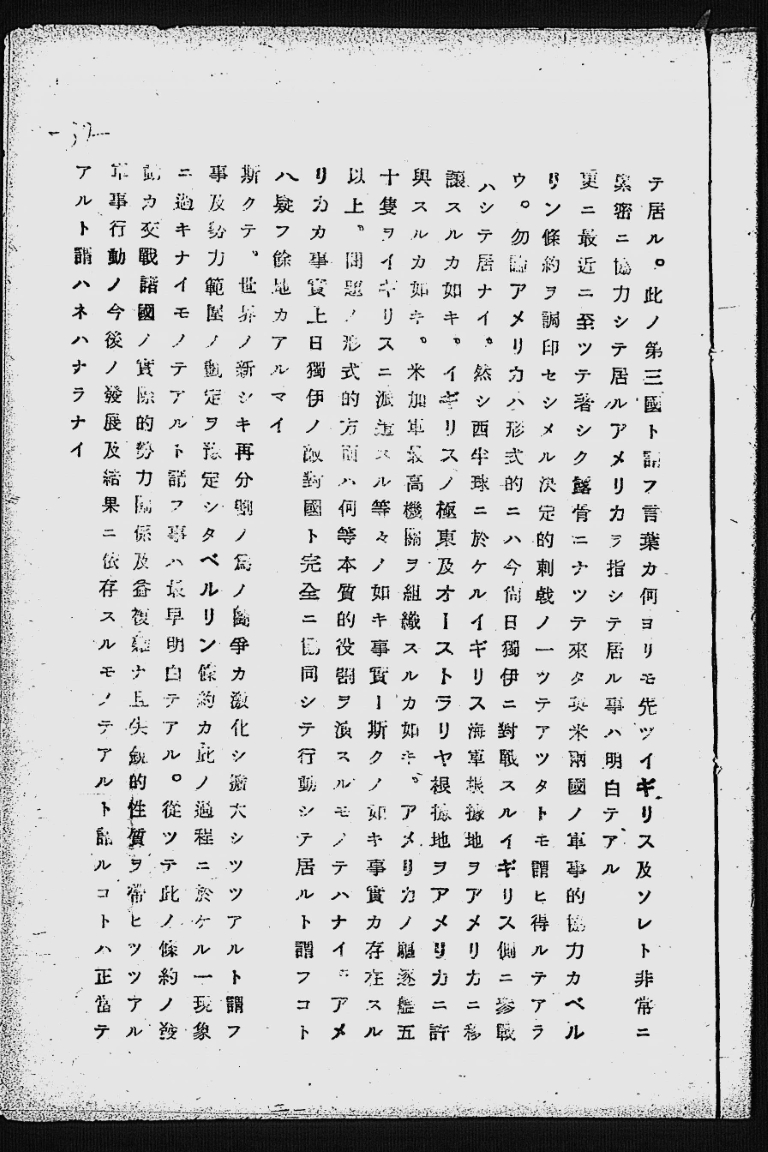 テ居ル。此ノ第三國ト謂フ言葉カ何ヨリモ先ツイギリス及ソレト非常ニ
緊密ニ協力シテ居ルアメリカヲ指シテ居ル事ハ明白テアル
更ニ最近ニ至ツテ著シク露骨ニナツテ來タ英米兩國ノ軍事的協力カベル
リン條約ヲ調印セシメル決定的刺戟ノ一ツテアツタトモ謂ヒ得ルテアラ
ウ。勿論アメリカハ形式的ニハ今尚日獨伊ニ對戰スルイギリス側ニ參戰
ハシテ居ナイ。然シ西半球ニ於ケルイギリス海軍根據地ヲアメリカニ移
讓スルカ如キ。イギリスノ極東及オーストラリヤ根據地ヲアメリカニ許
與スルカ如キ。米加軍最高機關ヲ組織スルカ如キ。アメリカノ驅逐艦五
十隻ヲイギリスニ派遣スル等々ノ如キ事實ー斯クノ如キ事實カ存在スル
以上、問題ノ形式的方面ハ何等本質的役割ヲ演スルモノテハナイ。アメ
リカカ事實上日獨伊ノ敵對國ト完全ニ協同シテ行動シテ居ルト謂フコト
ハ疑フ餘地カアルマイ
斯クテ、世界ノ新シキ再分割ノ爲ノ鬪爭カ激化シ擴大シツツアルト謂フ
事及勢力範圍ノ劃定ヲ豫定シタベルリン條約カ此ノ過程ニ於ケル一現象
ニ過キナイモノテアルト謂フ事ハ最早明白テアル。從ツテ此ノ條約ノ發
動カ交戰諸國ノ實際的勢力關係及益複雜ナ且尖鋭的性質ヲ帶ヒツツアル
軍事行動ノ今後ノ發展及結果ニ依存スルモノテアルト認ルコトハ正當テ
アルト謂ハネハナラナイ